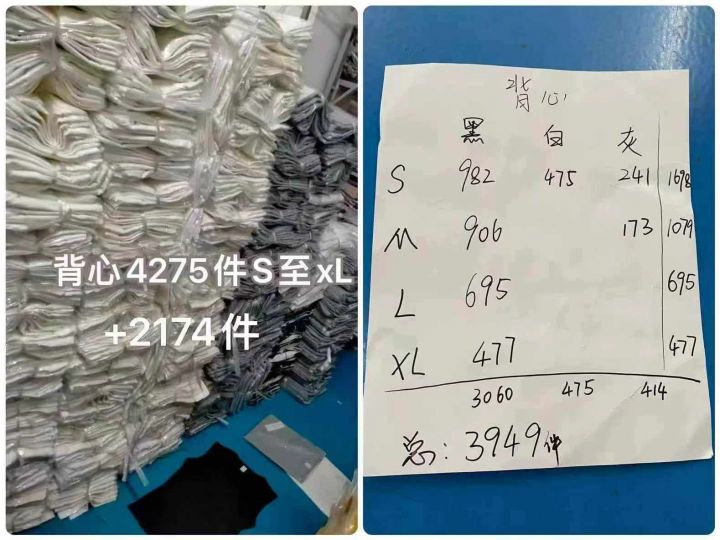 背心4275件S至xL
+2174件
背心
黑 白 灰
S 982 475 241 1698
M 906 173 1079
L 695 695
XL 477 477
3060 475 414
总:3949件